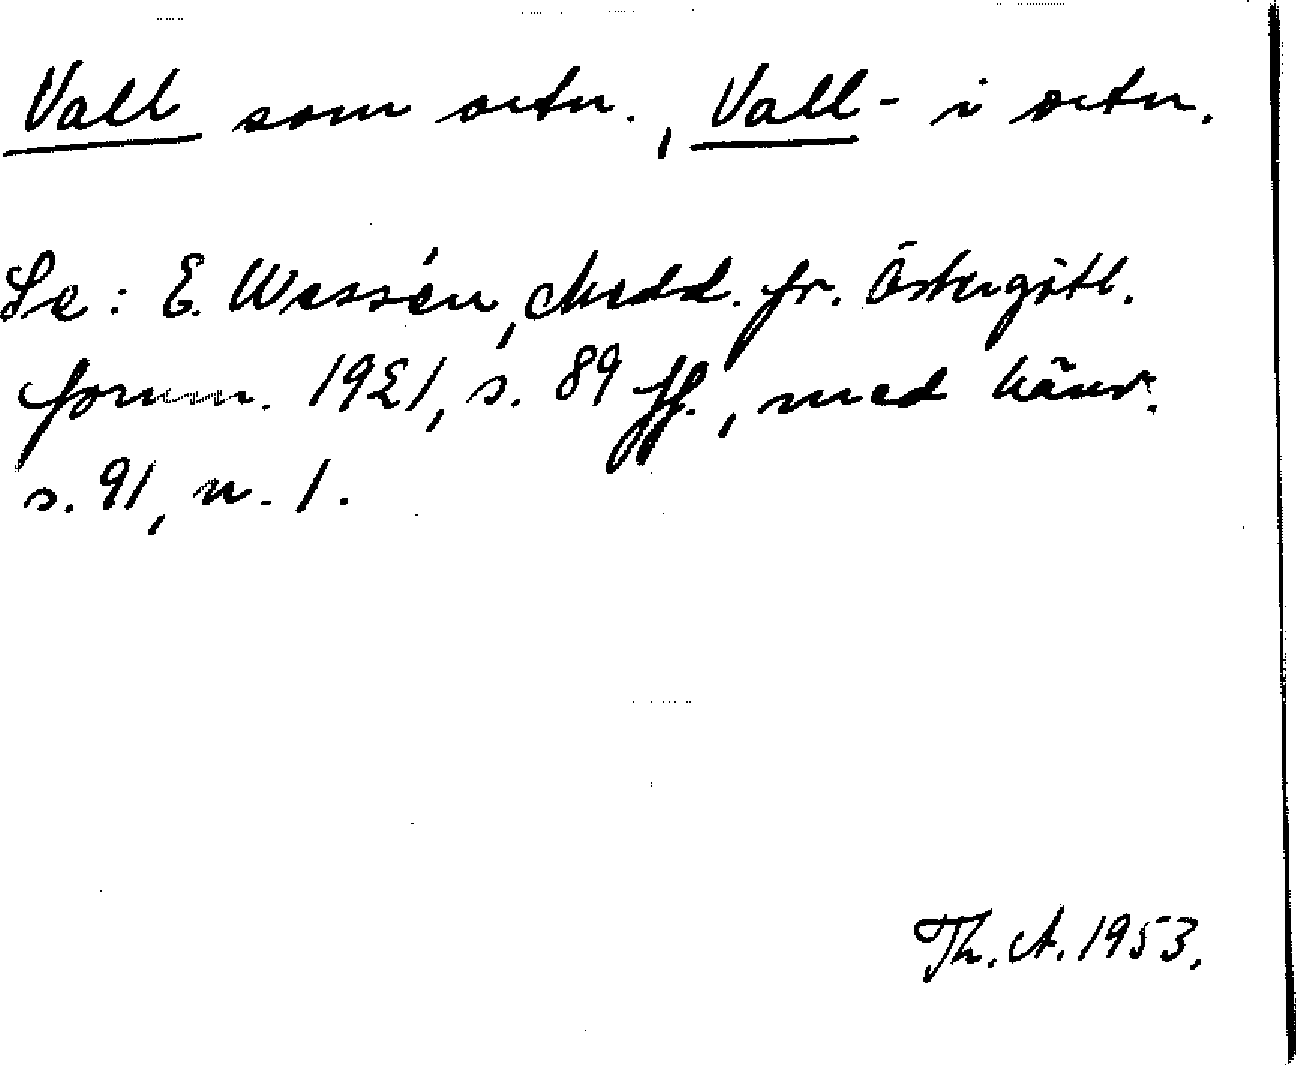 Vall som ortn., Vall- i ortn.
Se: E. Wessén, Medd. fr. Östergötl.
fornm. 1921, s. 89 ff., med hänv.
s. 91, n. 1.
Th. A. 1953.